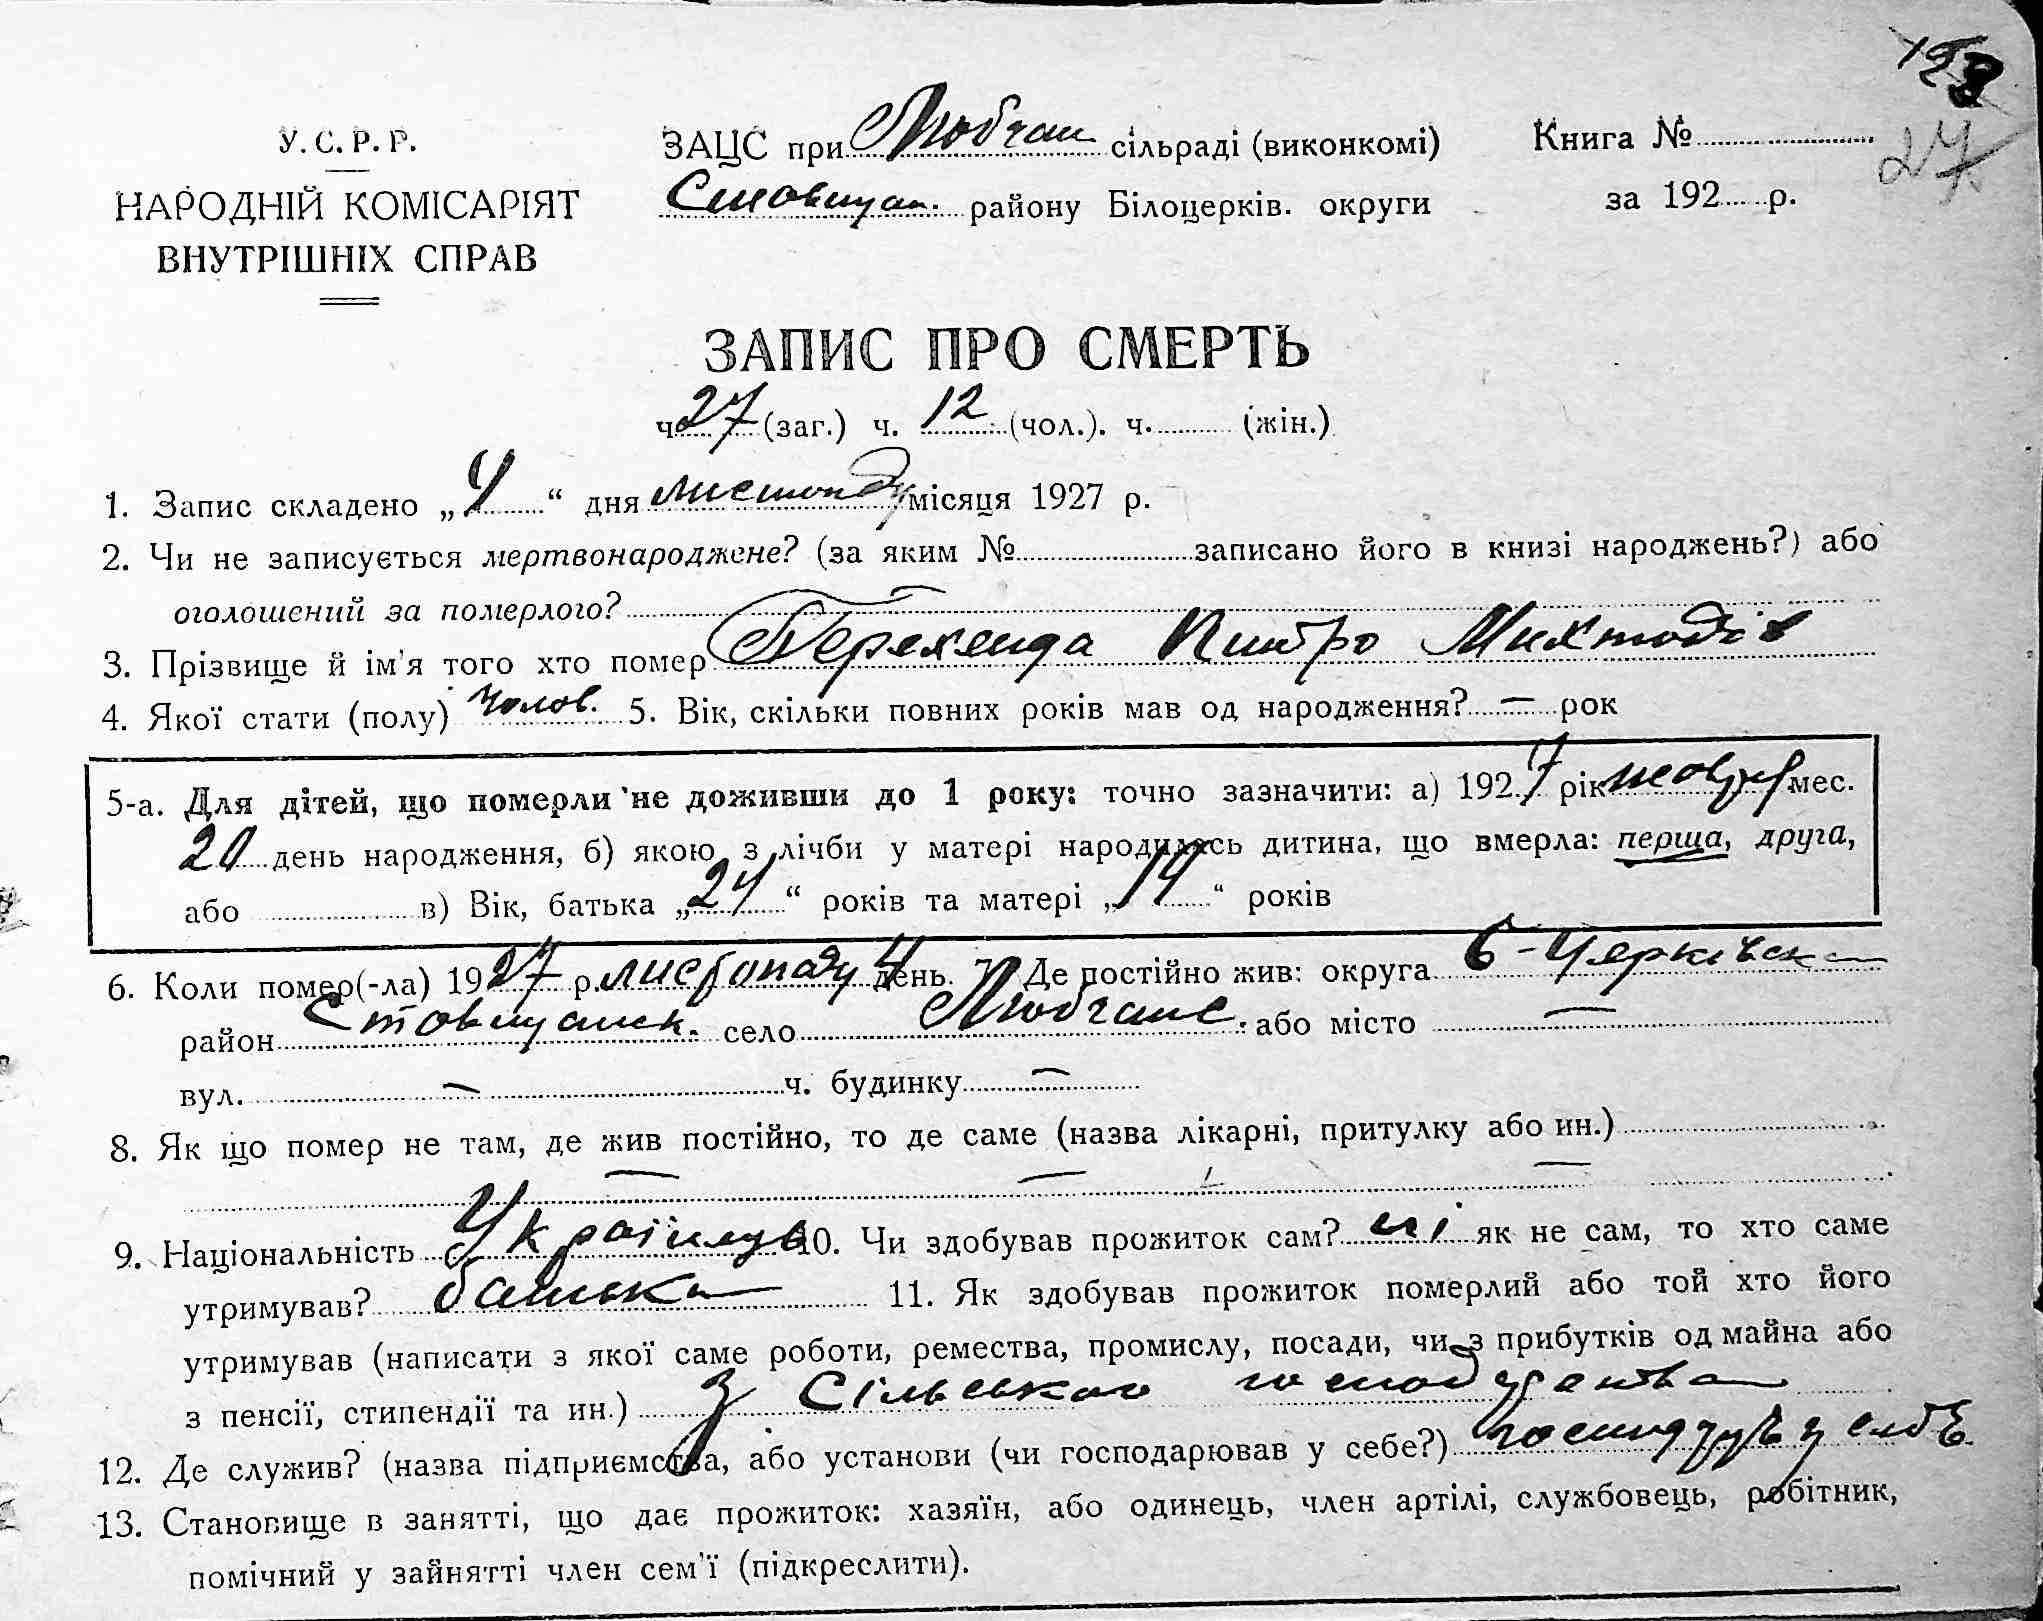 128
27
У.С.Р.Р.
НАРОДНІЙ КОМІСАРІЯТ
ВНУТРІШНІХ СПРАВ
ЗАЦС при Любчан сільраді (виконкомі)
Ставищан. району Білоцерків. округи
Книга №
за 192 р.
ЗАПИС ПРО СМЕРТЬ
ч. 27 (заг.) ч. 12 (чол.). ч. (жін.)
1. Запис складено „4“ дня листопаду місяця 1927 р.
2. Чи не записується мертвонароджене? (за яким № записано його в книзі народжень?) або
оголошений за померлого? —
3. Прізвище й ім'я того хто помер Петро
4. Якої стати (полу) Чолов. 5. Вік, скільки повних років мав од народження? — рок
5-а. Для дітей, що померли не доживши до 1 року: точно зазначити: а) 1927 рік жовтня мес.
20 день народження, б) якою з лічби у матері народилась дитина, що вмерла: перша, друга,
або в) Вік, батька „24“ років та матері „19“ років
6. Коли помер(-ла) 1927 р. листопаду 4 день. 7. Де постійно жив: округа Б-Церківська
район Ставищанск. село або місто —
вул. — ч. будинку —
8. Як що помер не там, де жив постійно, то де саме (назва лікарні, притулку або ин.)
— — —
9. Національність 10. Чи здобував прожиток сам? ні як не сам, то хто саме
утримував? батька 11. Як здобував прожиток померлий або той хто його
утримував (написати з якої саме роботи, ремества, промислу, посади, чи з прибутків од майна або
з пенсії, стипендії та ин.) З Сільського господарства
12. Де служив? (назва підприємства, або установи (чи господарював у себе?) у себе.
13. Становище в занятті, що дає прожиток: хазяїн, або одинець, член артілі, службовець, робітник,
помічний у зайнятті член сем'ї (підкреслити).